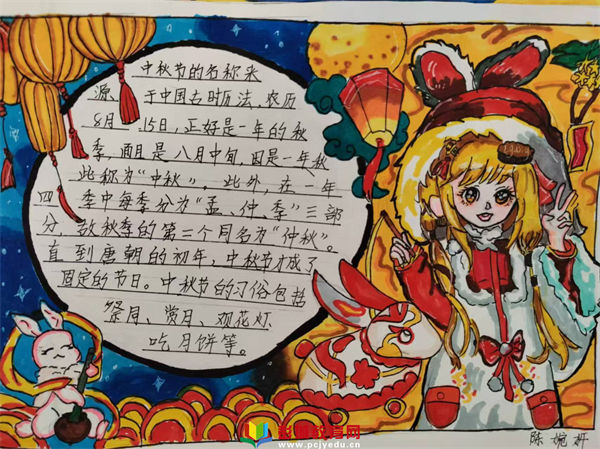 中秋节的名称来
源、于中国古时历法，农历
8月 15日，正好是一年的秋
季，而且是八月中旬，因是一年秋
此称为“中秋”。此外，在一年
四季中每季分为“孟、仲、季”三部
分，故秋季的第二个月名为“仲秋”。
直到唐朝的初年，中秋节才成了
固定的节日。中秋节的习俗包括
祭月、赏月、观花灯、
吃月饼等。
www.pcjyedu.cn
陈婉妍